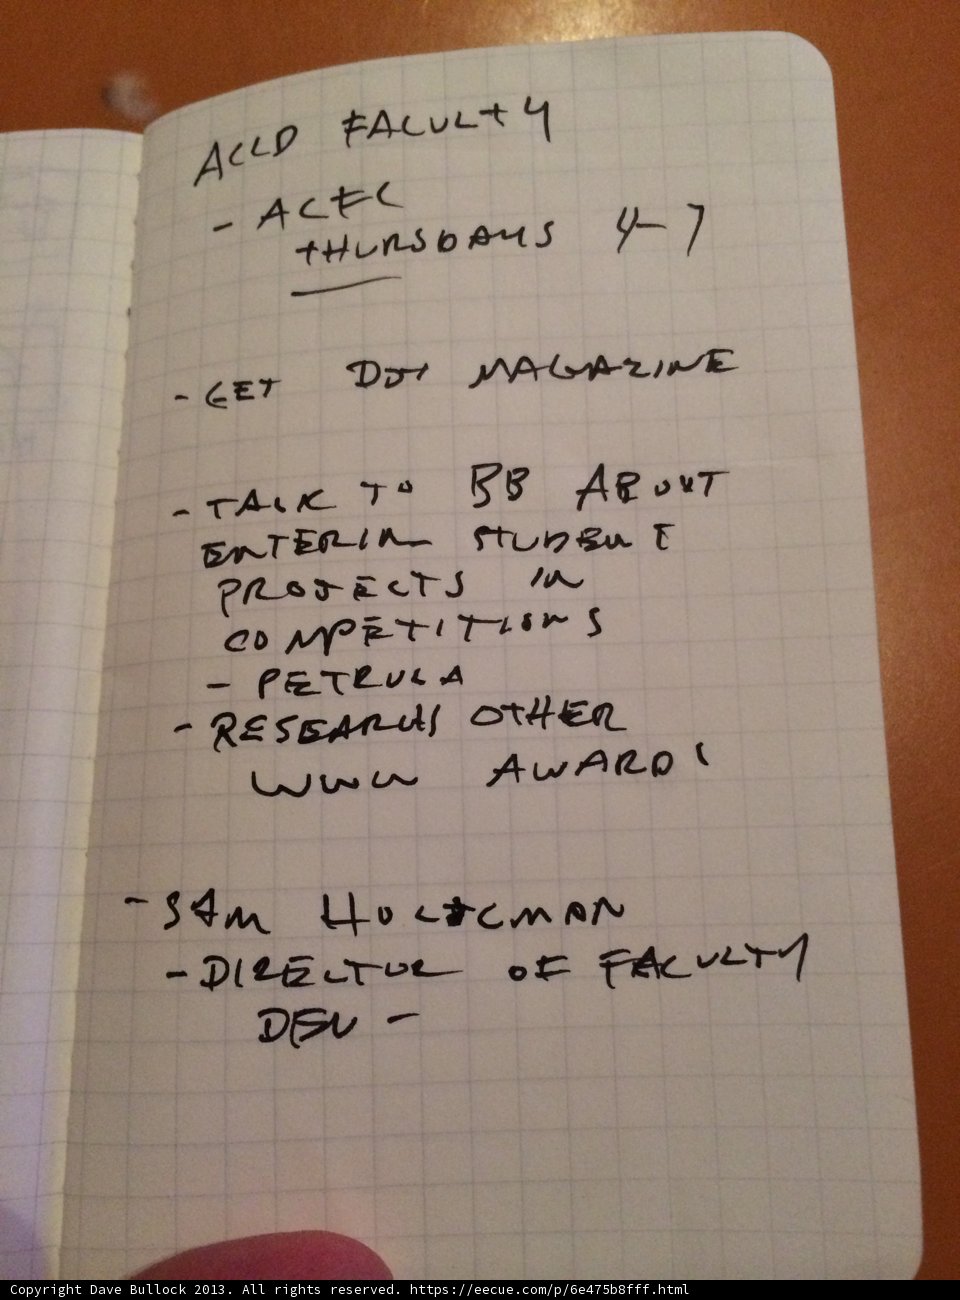 ACCD FACULTY
- ACFC
THURSDAYS 4-7
- GET DOT MAGAZINE
- TALK TO BB ABOUT
ENTERIN STUDENT
PROJECTS IN
COMPETITIONS
- PETRULA
- RESEARCH OTHER
WWW AWARDS
- SAM HOLTZMAN
- DIRECTOR OF FACULTY
DEV -
Copyright Dave Bullock 2013. All rights reserved. https://eecue.com/p/6e475b8fff.html